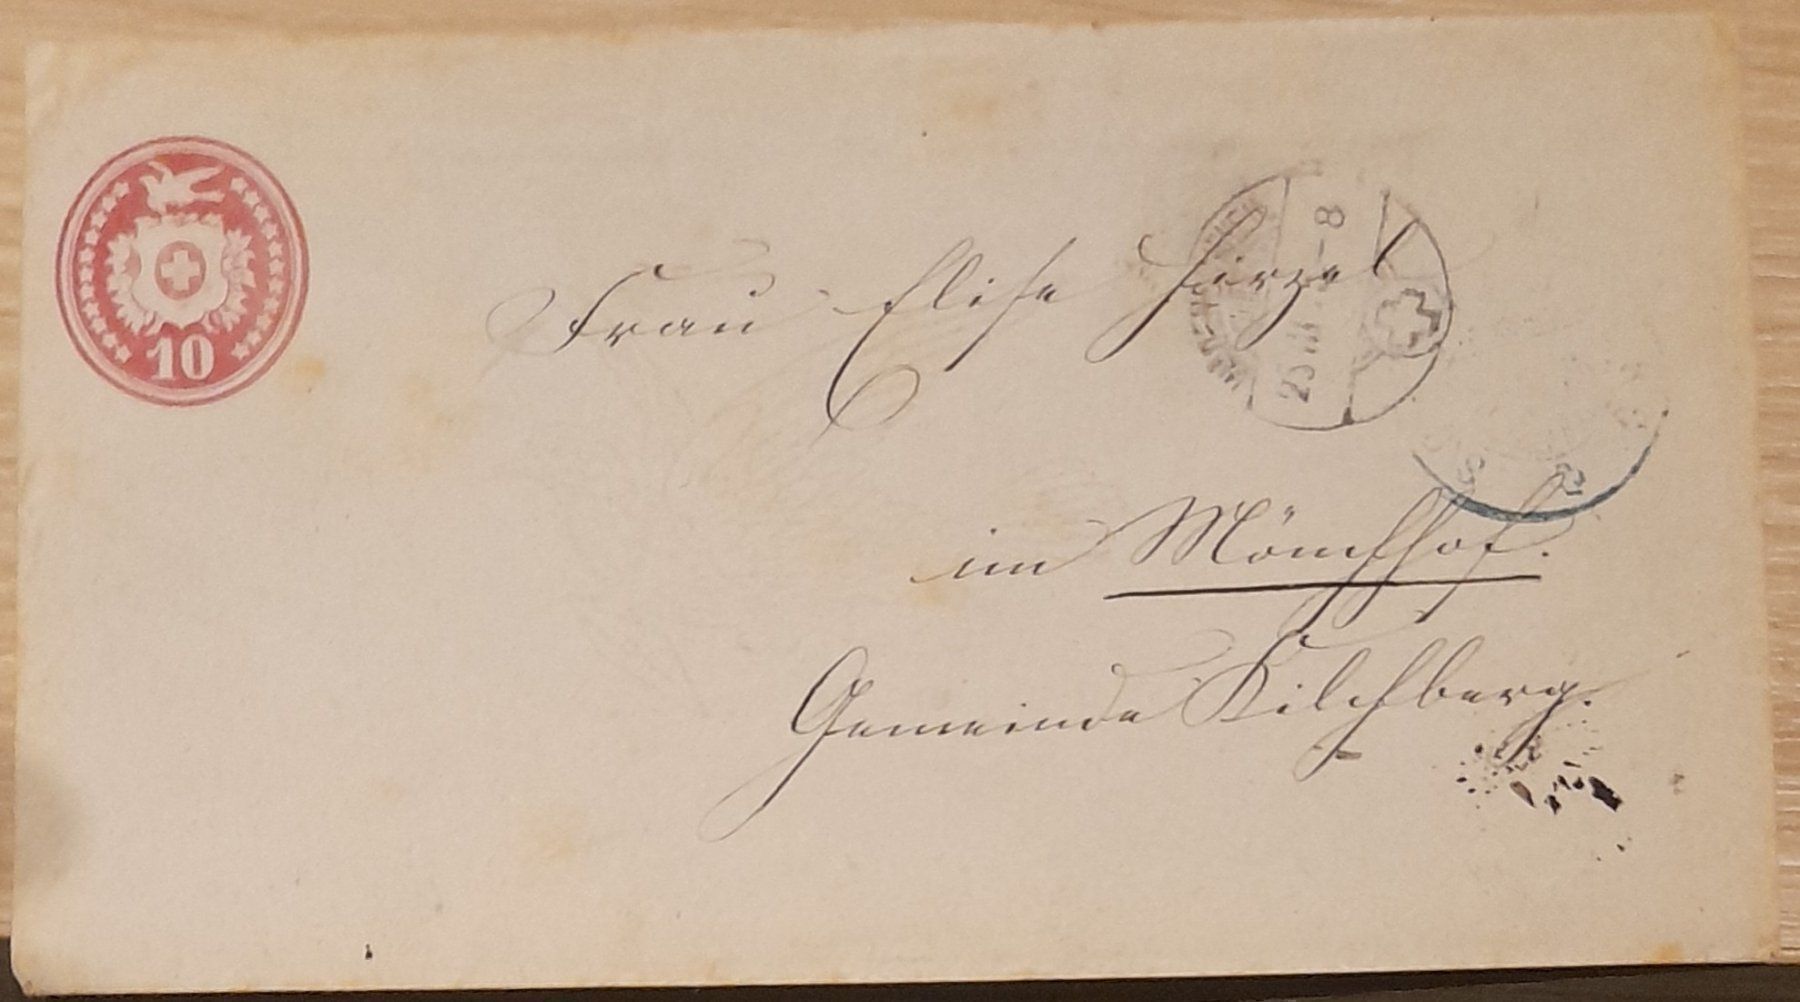 10
Frau Elise Hirzel
im Mönchhof.
Gemeinde Kilchberg.